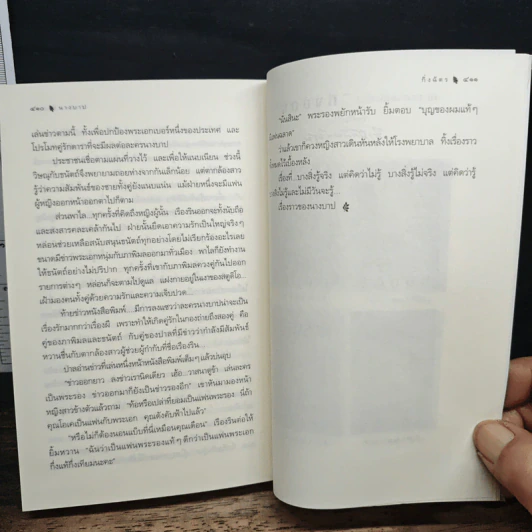 ๔๑๐ นางบาป
เล่นข่าวตามนี้ ทั้งเพื่อปกป้องพระเอกเบอร์หนึ่งของประเทศ และ
โปรโมทคู่รักดาราที่จะมีผลต่อละครนางบาป
ประชาชนเชื่อตามแผนที่วางไว้ และเพื่อให้แนบเนียน ช่วงนี้
วิษณุกับชนัตถ์จึงพยายามถอยห่างจากกันเล็กน้อย แต่ตากล้องสาว
รู้ว่าความสัมพันธ์ของชายทั้งคู่ยังแนบแน่น แม้ฝ่ายหนึ่งจะมีแฟน
ผู้หญิงออกหน้าออกตาไปก็ตาม
ส่วนพาโล...ทุกครั้งที่คิดถึงหญิงผู้นั้น เรื่องรินออกจะทั้งนับถือ
และสงสารคละเคล้ากันไป ฝ่ายนั้นยึดเอาความรักเป็นใหญ่จริงๆ
หล่อนช่วยเหลือสนับสนุนชนัตถ์ทุกอย่างโดยไม่เรียกร้องอะไรเลย
ขนาดมีข่าวพระเอกหนุ่มกับภาพิมลออกมาทั่วเมือง พาโลก็ยังทำงาน
ให้ชนัตถ์อย่างไม่ปริปาก ทุกครั้งที่เขากับภาพิมลควงคู่กันไปออก
รายการต่างๆ หล่อนก็จะตามไปดูแล แฝงกายอยู่ในเงาของสตูดิโอ...
เฝ้ามองคนทั้งคู่ด้วยความรักและความเจ็บปวด
ท้ายข่าวหนังสือพิมพ์... มีการลงแซวว่าละครนางบาปน่าจะเป็น
เรื่องรักมากกว่าเรื่องผี เพราะทำให้เกิดคู่รักในกองถ่ายถึงสองคู่ คือ
คู่ของภาพิมลและชนัตถ์ กับคู่ของปาลที่มีข่าวว่ากำลังมีสัมพันธ์
หวานชื่นกับตากล้องสาวผู้ช่วยผู้กำกับที่ชื่อเรืองริน...
ปาลอ่านข่าวที่เล่นหนึ่งหน้าหนังสือพิมพ์เต็มๆ แล้วบ่นอุบ
"ข่าวออกยาว ลงข่าวเรานิดเดียว เฮ้อ...วาสนาตูข้า เล่นละคร
เป็นพระรอง ข่าวออกมาก็ยังเป็นข่าวรองอีก" เขาหันมามองหน้า
หญิงสาวข้างตัวแล้วถาม
คุณโอเคเป็นแฟนกับพระเอก คุณดังคับฟ้าไปแล้ว"
"หรือไม่ก็ต้องนอนแบ็บที่นี่เหมือนคุณเดือน" เรืองรินต่อให้
ยิ้มหวาน "ฉันว่าเป็นแฟนพระรองแท้ๆ ดีกว่าเป็นแฟนพระเอก
กิ่งฉัตร ๔๑๑
"นั่นสินะ" พระรองพยักหน้ารับ ยิ้มตอบ "บุญของผมแท้ๆ
ว่าแล้วเขาก็ควงหญิงสาวเดินหันหลังให้โรงพยาบาล ทิ้งเรื่องราว
ไว้เบื้องหลัง
เรื่องที่...บางสิ่งรู้จริง แต่คิดว่าไม่รู้ บางสิ่งรู้ไม่จริง แต่คิดว่ารู้
ไม่รู้และไม่มีวันจะรู้...
เรื่องราวของนางบาป